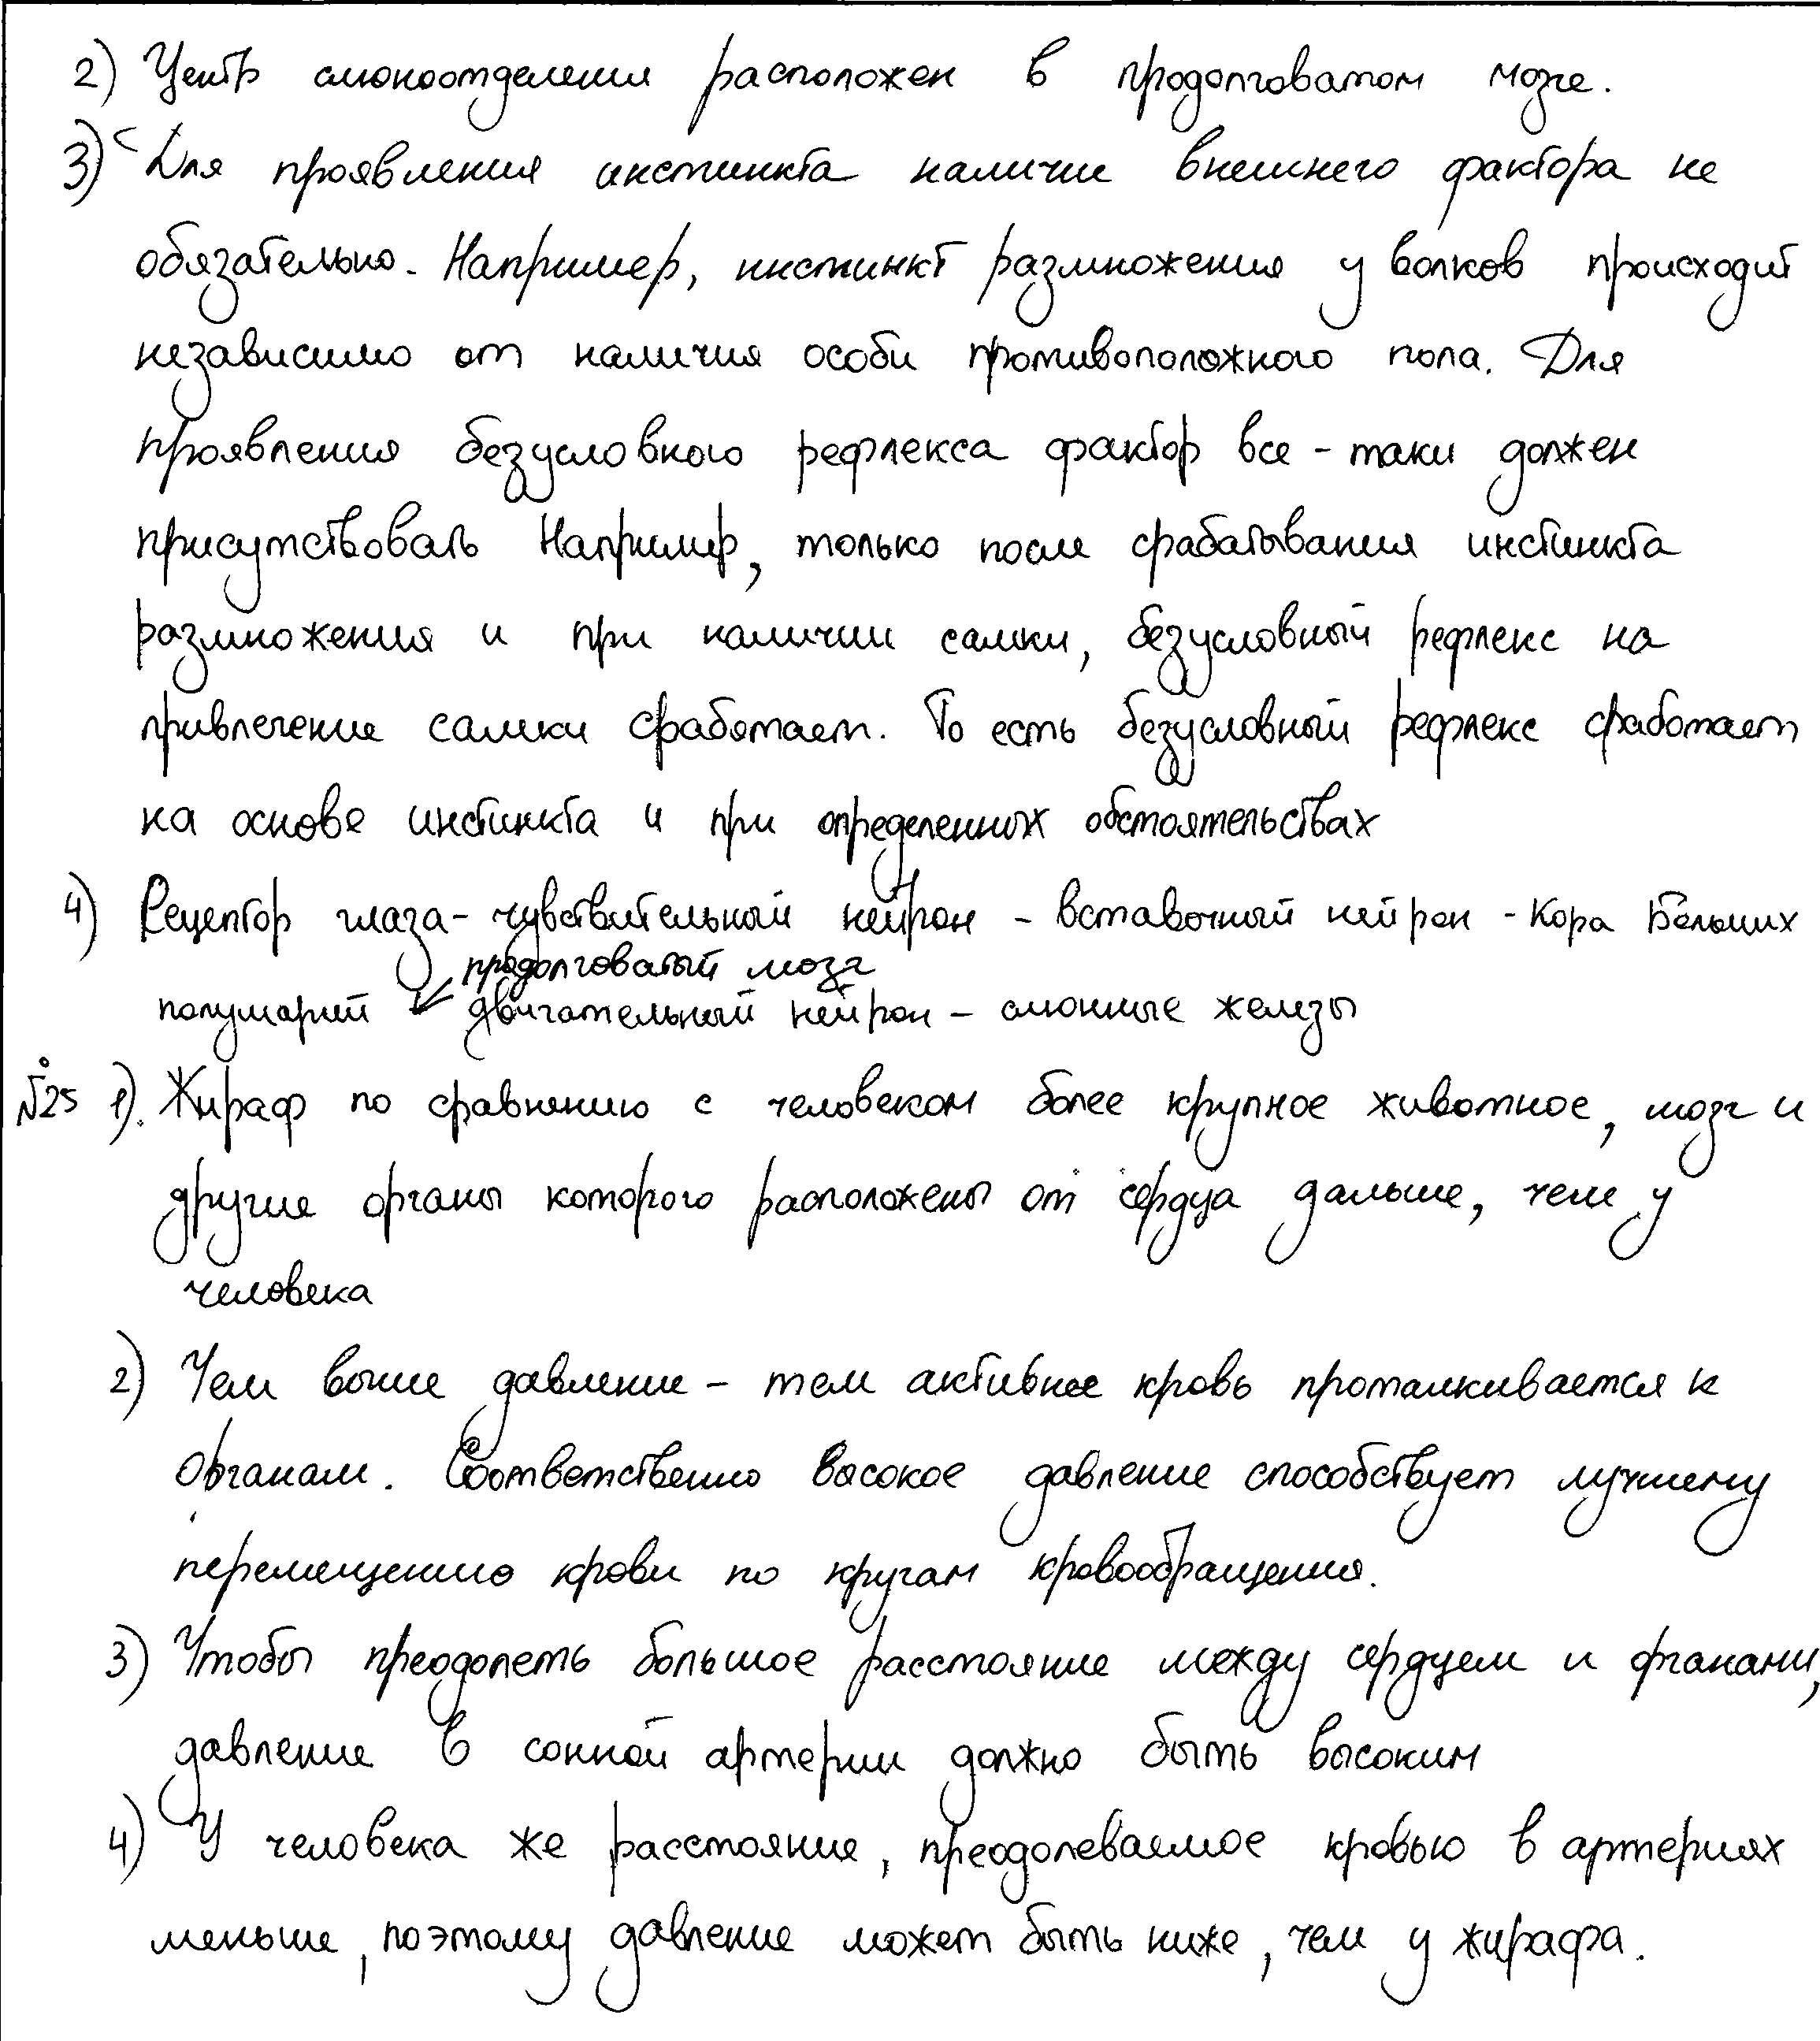 2) Центр слюноотделения расположен в продолговатом мозге.
3) Для проявления инстинкта наличие внешнего фактора не
обязательно. Например, инстинкт размножения у волков происходит
независимо от наличия особи противоположного пола. Для
проявления безусловного рефлекса фактор все-таки должен
присутствовать Например, только после срабатывания инстинкта
размножения и при наличии самки, безусловный рефлекс на
привлечение самки сработает. То есть безусловный рефлекс сработает
на основе инстинкта и при определенных обстоятельствах
4) Рецептор глаза - чувствительный нейрон - вставочный нейрон - Кора Больших
продолговатый мозг
полушарий ↙ двигательный нейрон - слюнные железы
№25 1). Жираф по сравнению с человеком более крупное животное, мозг и
другие органы которого расположены от сердца дальше, чем у
человека
2) Чем выше давление - тем активнее кровь проталкивается к
органам. Соответственно высокое давление способствует лучшему
перемещению крови по кругам кровообращения.
3) Чтобы преодолеть большое расстояние между сердцем и органами,
давление в сонной артерии должно быть высоким
4) У человека же расстояние, преодолеваемое кровью в артериях
меньше, поэтому давление может быть ниже, чем у жирафа.